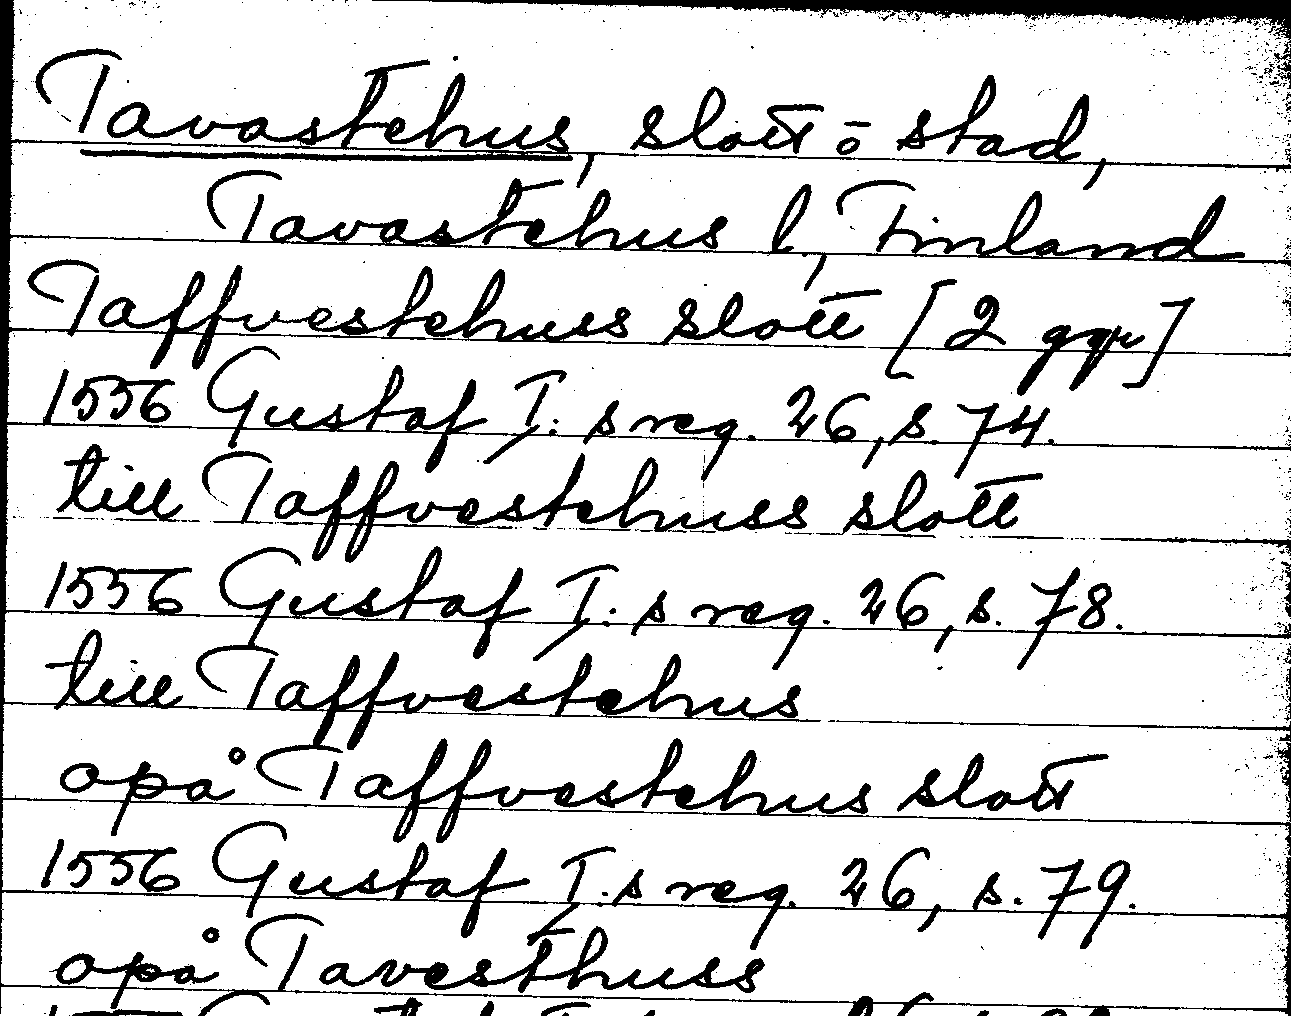 Tavastehus, slott ō stad,
Tavastehus l, Finland
Taffvestehuss slott [2 ggr]
1556 Gustaf I: s reg. 26, s. 74.
till Taffvestehuss slott
1556 Gustaf I: s reg. 26, s. 78.
till Taffvestehus
opå Taffvestehus slott
1556 Gustaf I: s reg. 26, s. 79.
opå Tavesthuss